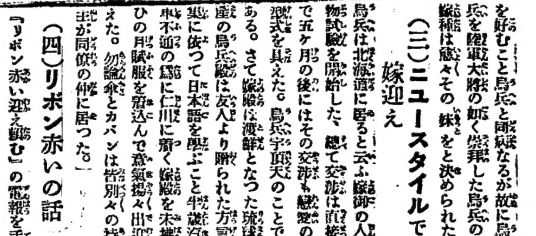 を好むこと烏兵と同病なるが故に烏
兵を陸軍大将の如く崇拝した烏兵の
嫁種は愈々その妹をと決められた
(三)ニュースタイルで
嫁迎え
烏兵は北海道に居ると云ふ嫁御の人
物試験を開始した、総て交渉は直接
で五ヶ月の後にはその交渉も戀愛の
型式を具えた。烏兵宇頂天のことで
ある。さて嫁殿は渡鮮となつた琉球
産の烏兵殿は友人より贈られた方言
集に依つて日本語を學ぶこと半歳汽
車不通の為に仁川に着く嫁殿を未拂
ひの月賦服を着込んで意氣揚々出迎
えた。勿論傘とカバンは皆別々の持
主が同僚の仲に居つた。」
(四)リボン赤いの話
『リボン赤い迎え頼む』の電報を手